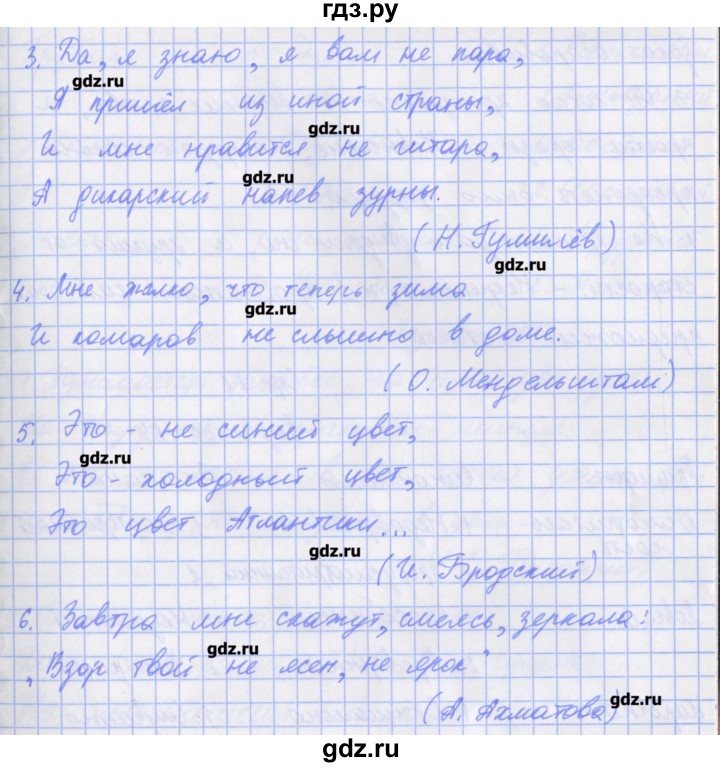 гдз.ру
3. Да, я знаю, я вам не пара,
gdz.ru
Я пришёл из иной страны,
gdz.ru
И мне нравится не гитара,
gdz.ru
А дикарский напев зурны.
(Н. Гумилёв)
gdz.ru
4. Мне жалко, что теперь зима
gdz.ru
И комаров не слышно в доме.
(О. Мендельштам)
5. Это - не синий цвет,
gdz.ru
Это - холодный цвет,
Это цвет Атлантики...
gdz.ru
(И. Бродский)
6. Завтра мне скажут, смеясь, зеркала:
gdz.ru
„Взор твой не ясен, не ярок"
gdz.ru
(А. Ахматова)
gdz.ru